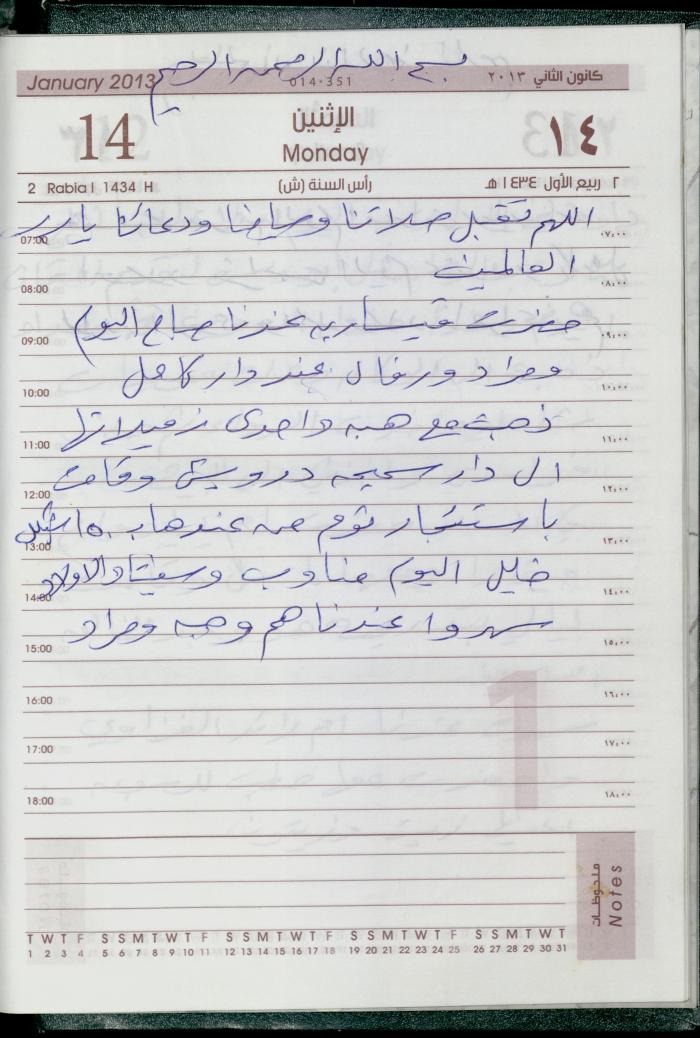 بسم الله الرحمن الرحيم
January 2013 014-351 كانون الثاني ٢٠١٣
14 الإثنين ١٤
Monday
2 Rabia I 1434 H رأس السنة (ش) ٢ ربيع الأول ١٤٣٤ هـ
اللهم تقبل صلاتنا وصيامنا ودعائنا يا رب
07:00 ٠٧:٠٠
العالمين
08:00 ٠٨:٠٠
حضرت قيساريه عندنا صباح اليوم
09:00 ٠٩:٠٠
ومراد ورفال عند دار كامل
10:00 ١٠:٠٠
ذهبت مع هبه واحدى زميلاتها
11:00 ١١:٠٠
ال دار سميحه درويش وقامت
12:00 ١٢:٠٠
باستئجار ثوم من عندها ب ١٥٠ شيكل
13:00 ١٣:٠٠
خليل اليوم مناوب وسيفتا والاولاد
14:00 ١٤:٠٠
سهروا عندنا هم وهبه ومراد
15:00 ١٥:٠٠
16:00 ١٦:٠٠
17:00 ١٧:٠٠
18:00 ١٨:٠٠
1
ملحوظات
Notes
T W T F S S M T W T F S S M T W T F S S M T W T F S S M T W T
1 2 3 4 5 6 7 8 9 10 11 12 13 14 15 16 17 18 19 20 21 22 23 24 25 26 27 28 29 30 31